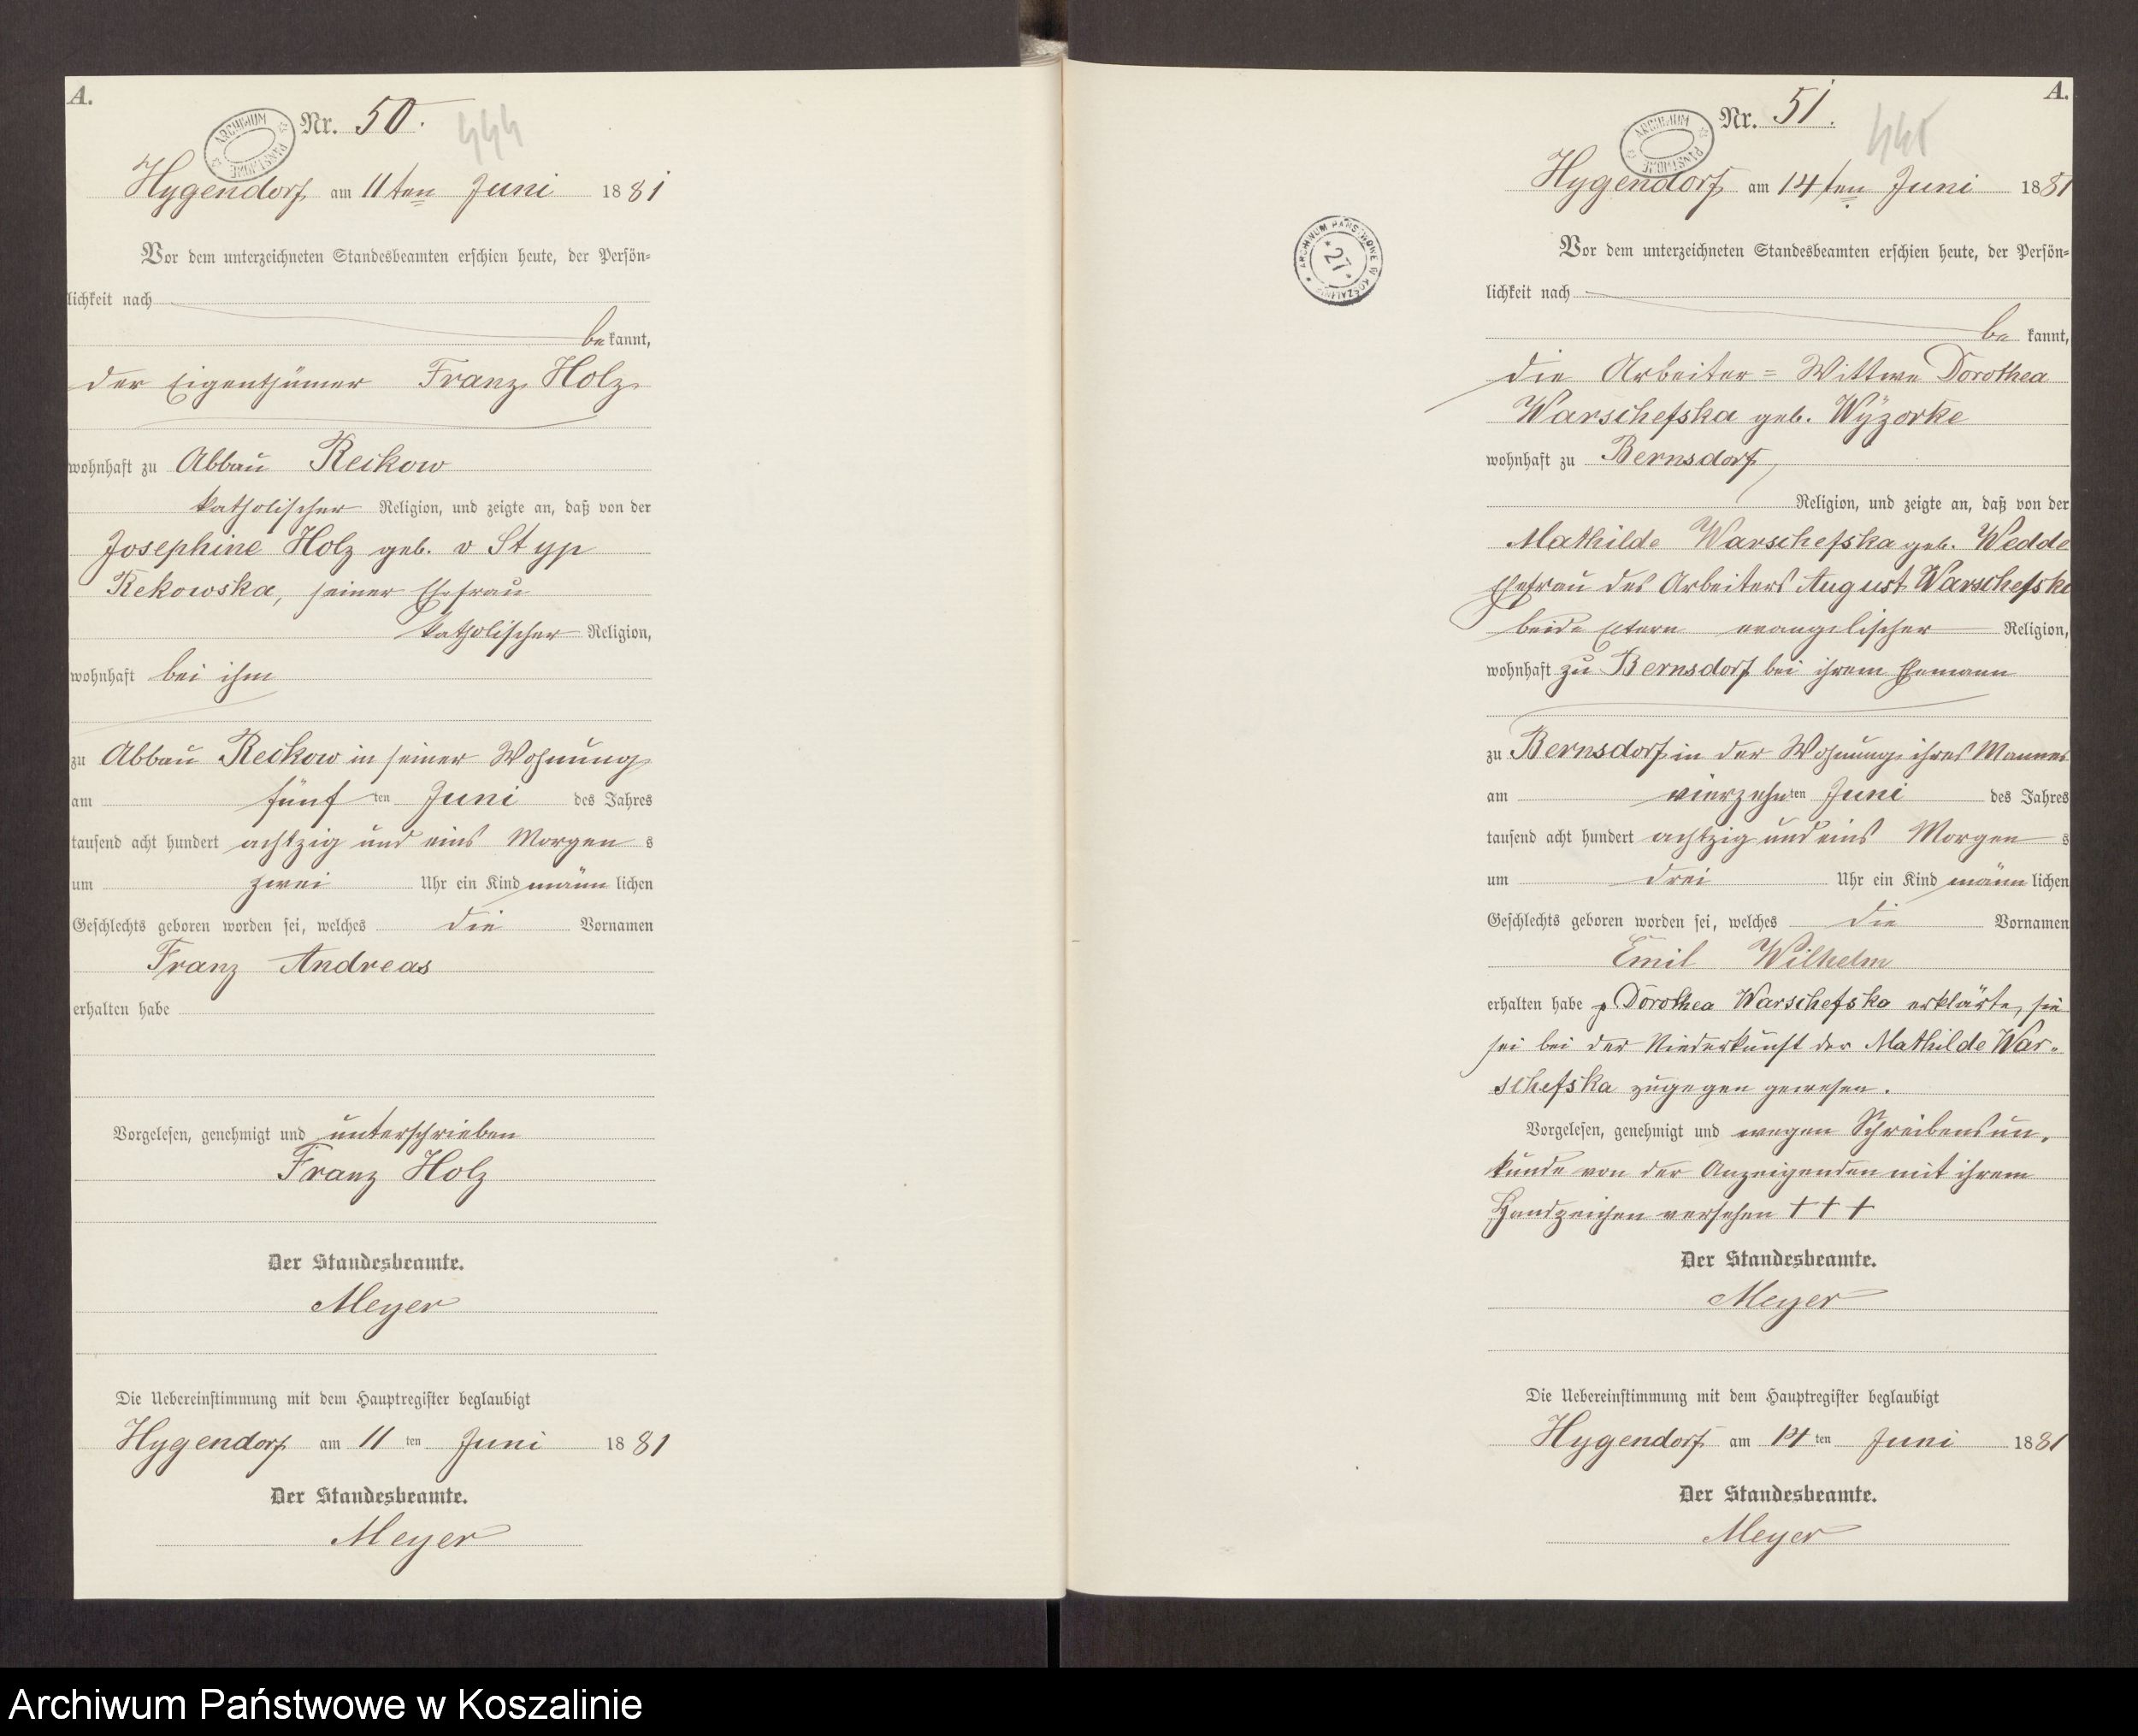 A.
Nr. 50.
444
ARCHIWUM PAŃSTWOWE
Hygendorf am 11ten Juni 1881
Vor dem unterzeichneten Standesbeamten erschien heute, der Persön=
lichkeit nach
be kannt,
der Eigenthümer Franz Holz
wohnhaft zu Abbau Reckow
katholischer Religion, und zeigte an, daß von der
Josephine Holz geb. v Styp
Rekowska, seiner Ehefrau
katholischer Religion,
wohnhaft bei ihm
zu Abbau Reckow in seiner Wohnung
am fünf ten Juni des Jahres
tausend acht hundert achtzig und eins Morgen s
um zwei Uhr ein Kind männ lichen
Geschlechts geboren worden sei, welches die Vornamen
Franz Andreas
erhalten habe
Vorgelesen, genehmigt und unterschrieben
Franz Holz
Der Standesbeamte.
Meyer
Die Uebereinstimmung mit dem Hauptregister beglaubigt
Hygendorf am 11 ten Juni 1881
Der Standesbeamte.
Meyer
A.
Nr. 51.
445
ARCHIWUM PAŃSTWOWE
Hygendorf am 14ten Juni 1881
ARCHIWUM PAŃSTWOWE W KOSZALINIE
27
Vor dem unterzeichneten Standesbeamten erschien heute, der Persön=
lichkeit nach
be kannt,
die Arbeiter = Wittwe Dorothea
Warschefska geb. Wÿzorke
wohnhaft zu Bernsdorf,
Religion, und zeigte an, daß von der
Mathilde Warschefska geb. Wedde
Ehefrau des Arbeiters August Warschefski
beide Eltern evangelischer Religion,
wohnhaft zu Bernsdorf bei ihrem Ehemann
zu Bernsdorf in der Wohnung ihres Mannes
am vierzehn ten Juni des Jahres
tausend acht hundert achtzig und eins Morgen s
um drei Uhr ein Kind männ lichen
Geschlechts geboren worden sei, welches die Vornamen
Emil Wilhelm
erhalten habe p Dorothea Warschefska erklärte, sie
sei bei der Niederkunft der Mathilde War=
schefska zugegen gewesen.
Vorgelesen, genehmigt und wegen Schreibensun=
kunde von der Anzeigenden mit ihrem
Handzeichen versehen + + +
Der Standesbeamte.
Meyer
Die Uebereinstimmung mit dem Hauptregister beglaubigt
Hygendorf am 14 ten Juni 1881
Der Standesbeamte.
Meyer
Archiwum Państwowe w Koszalinie